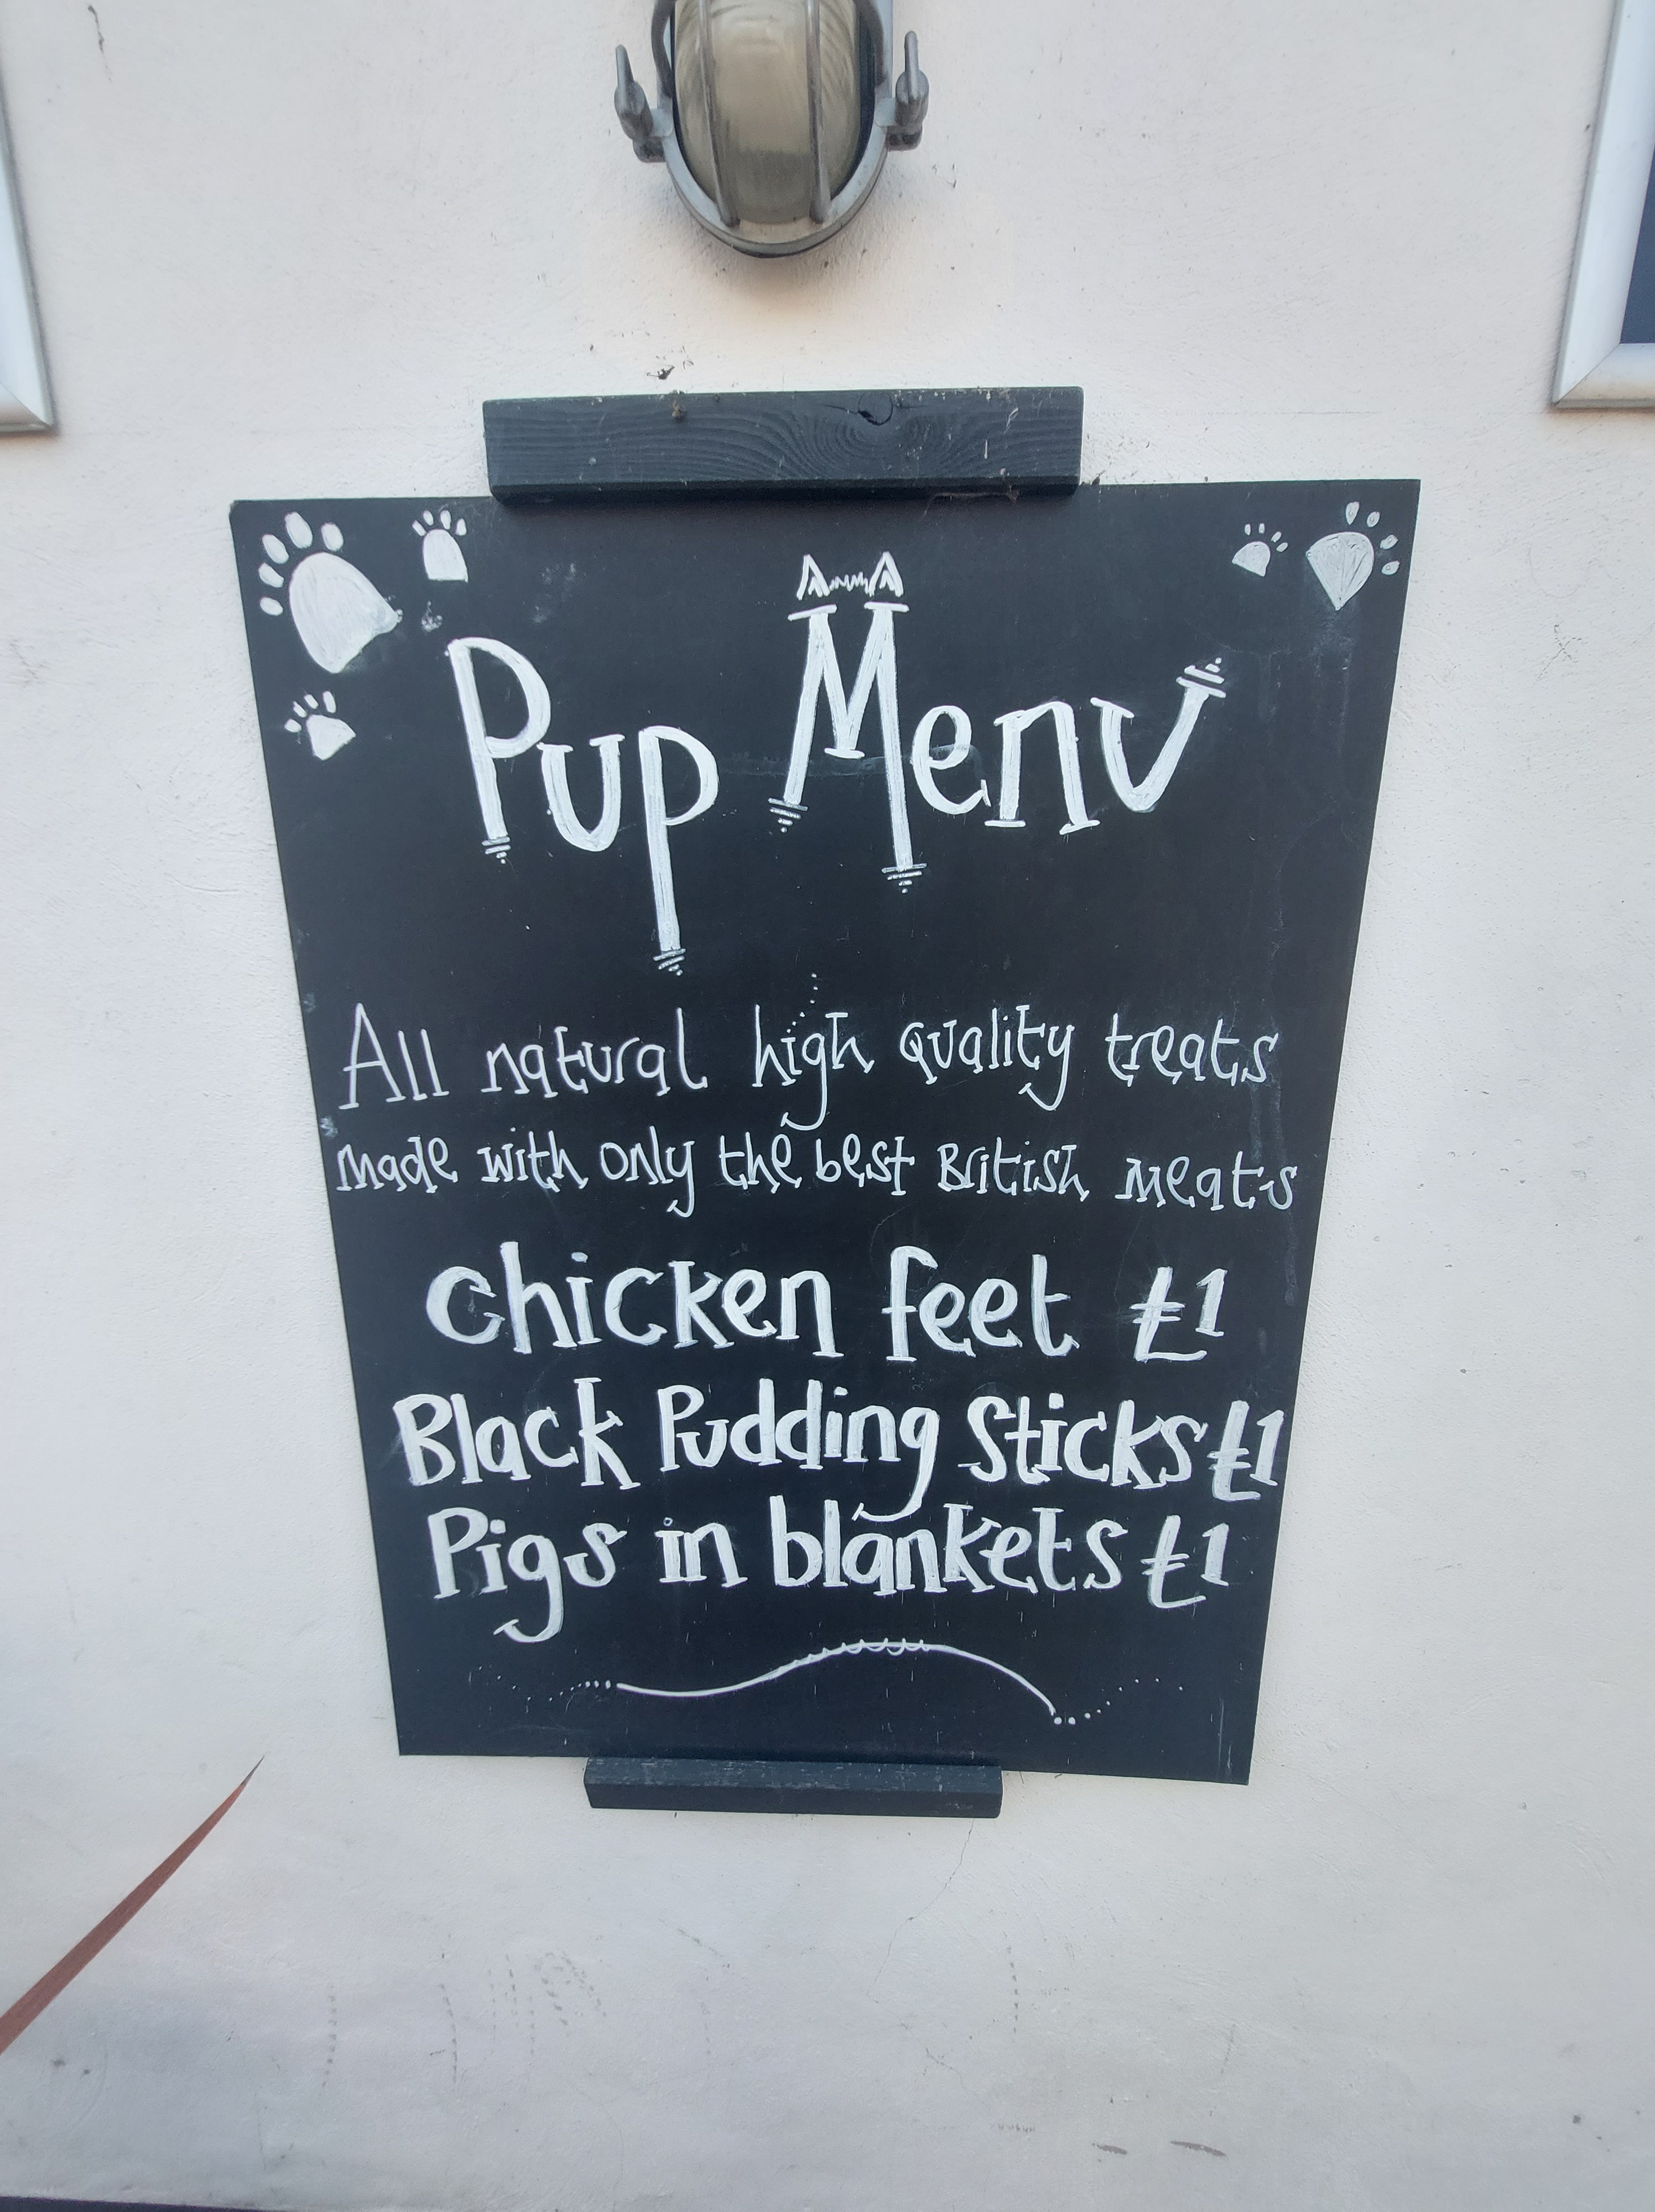 Pup Menu
All natural high quality treats
made with only the best British meats
Chicken feet £1
Black Pudding Sticks £1
Pigs in blankets £1